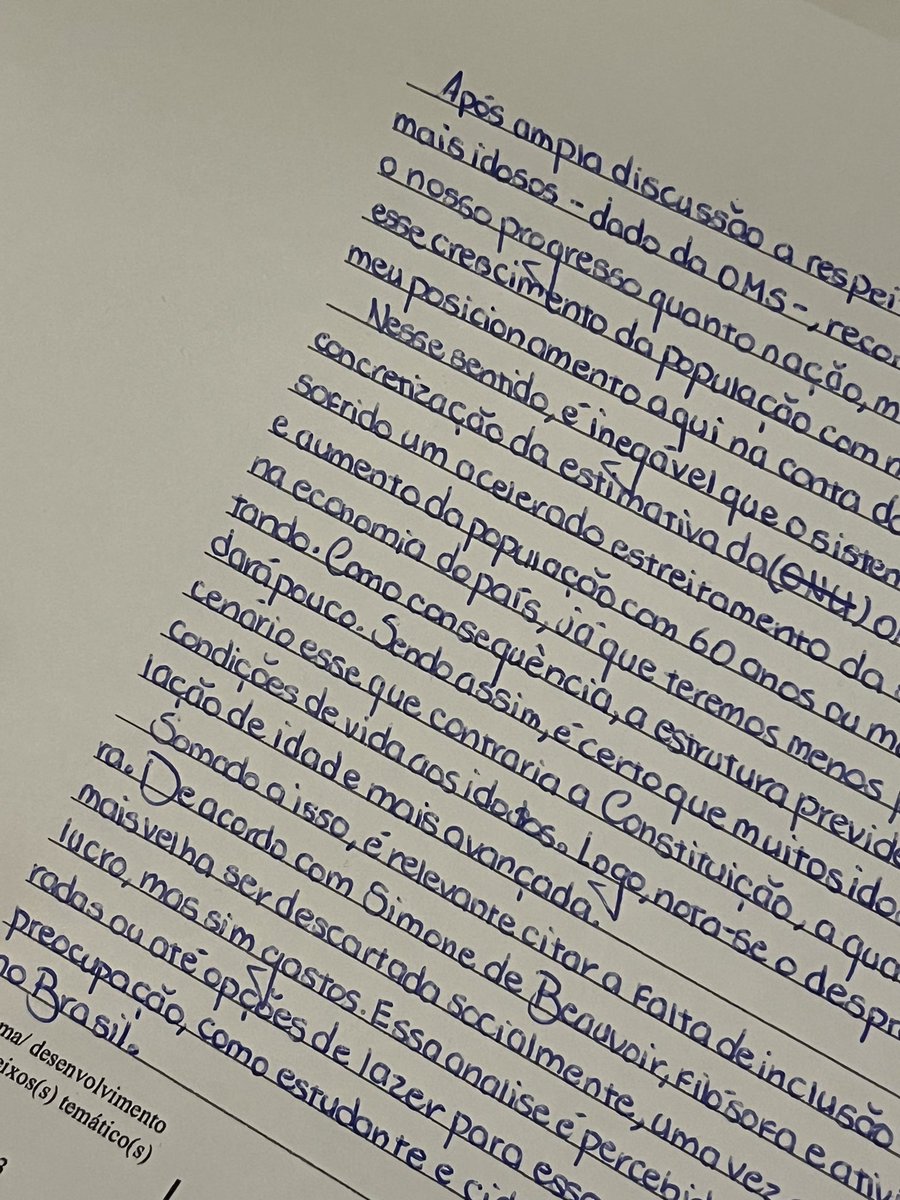 Após ampla discussão a respei
mais idosos - dado da OMS -, reco
o nosso progresso quanto nação, m
esse crescimento da população com m
meu posicionamento aqui na conta do
Nesse sentido, é inegável que o sistem
concretização da estimativa da (ONU) o
sofrido um acelerado estreitamento da
e aumento da população com 60 anos ou ma
na economia do país, já que teremos menos p
tando. Como consequência, a estrutura previde
dará pouco. Sendo assim, é certo que muitos ido
cenário esse que contraria a Constituição, a qua
condições de vida aos idosos. Logo, nota-se o despr
lação de idade mais avançada.
Somado a isso, é relevante citar a falta de inclusão
ra. De acordo com Simone de Beauvoir, filósofa e ativi
mais velha ser descartada socialmente, uma vez
lucro, mas sim gastos. Essa analise é percebid
radas ou até opções de lazer para esse
preocupação, como estudante e cid
no Brasil.
ma/ desenvolvimento
eixos(s) temático(s)
3